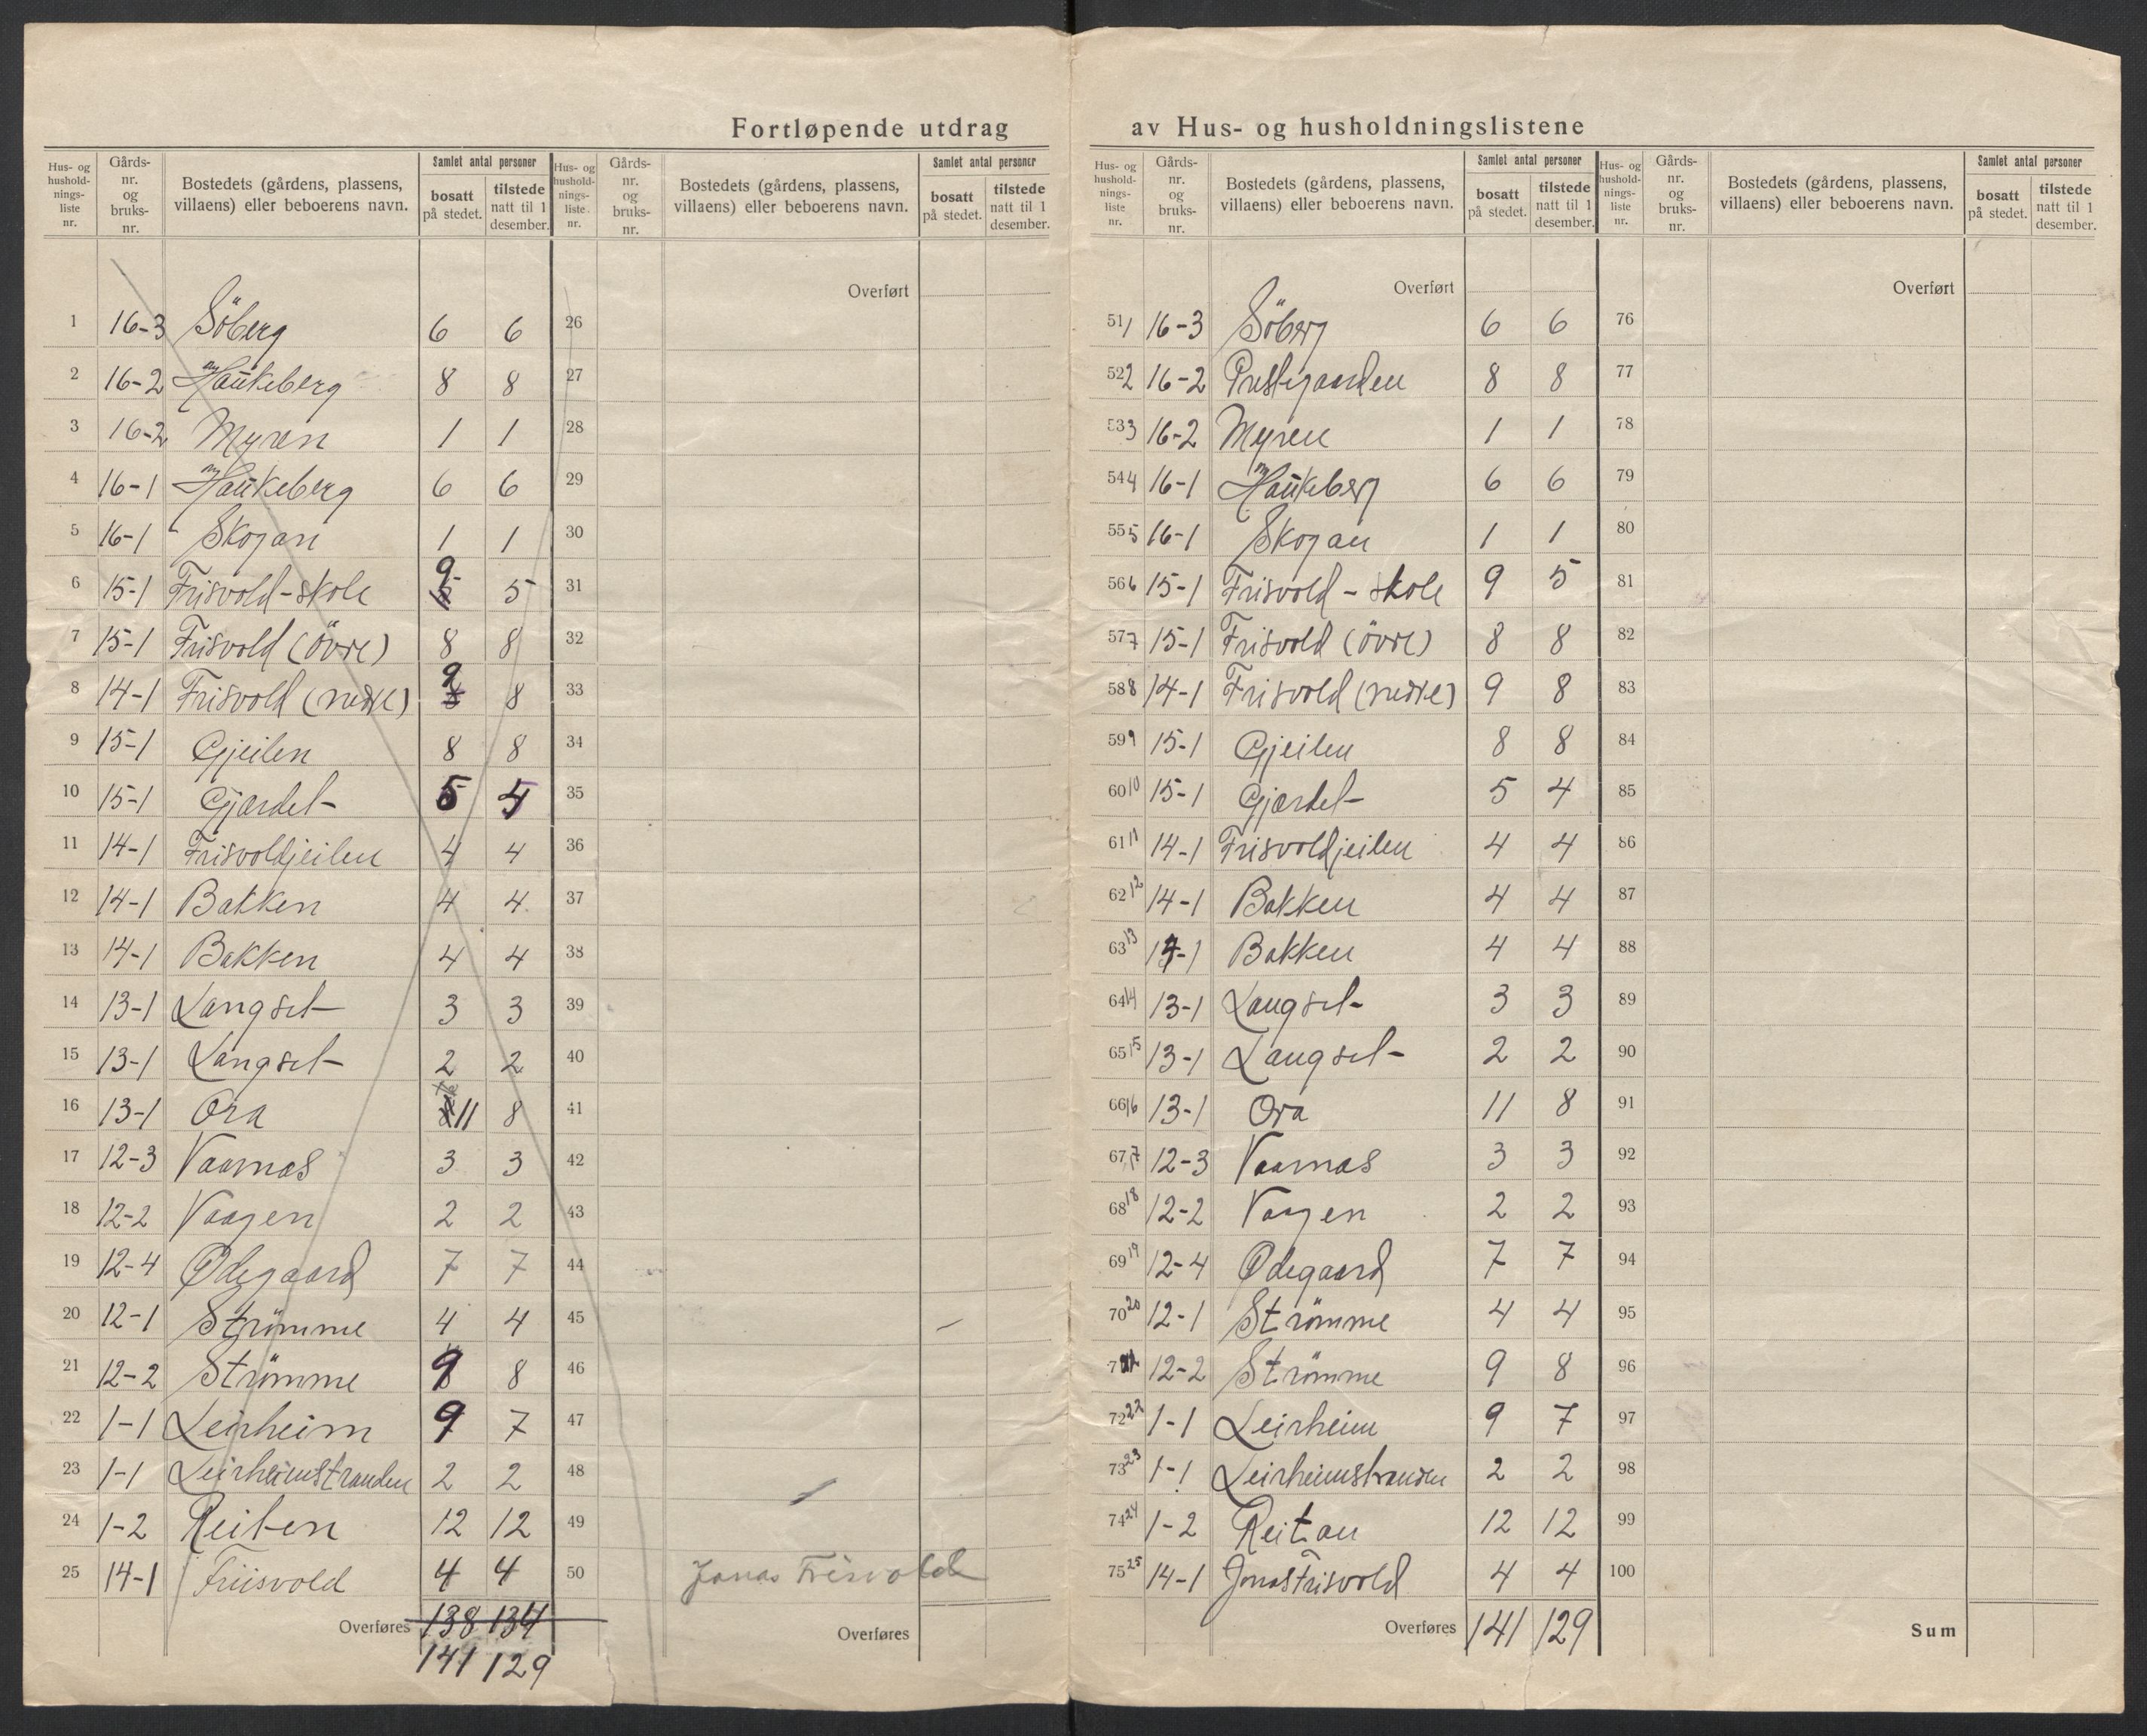 Fortløpende utdrag av Hus- og husholdningslistene
Hus- og husholdnings-liste nr. | Gårds-nr. og bruks-nr. | Bostedets (gårdens, plassens, villaens) eller beboerens navn. | Samlet antal personer | bosatt på stedet. | tilstede natt til 1 desember.
1 16-3 Söberg 6 6
2 16-2 Haukeberg 8 8
3 16-2 Myren 1 1
4 16-1 Haukeberg 6 6
5 16-1 Skogan 1 1
6 15-1 Frisvold-skole 9 5
7 15-1 Frisvold (övre) 8 8
8 14-1 Frisvold (nedre) 9 8
9 15-1 Gjeilen 8 8
10 15-1 Gjærdet 5 4
11 14-1 Frisvoldjeilen 4 4
12 14-1 Bakken 4 4
13 14-1 Bakken 4 4
14 13-1 Langset 3 3
15 13-1 Langset 2 2
16 13-1 Ora 11 8
17 12-3 Vaarnas 3 3
18 12-2 Vaagen 2 2
19 12-4 Ødegaard 7 7
20 12-1 Strömme 4 4
21 12-2 Strömme 9 8
22 1-1 Leirheim 9 7
23 1-1 Leirheimstranden 2 2
24 1-2 Reiten 12 12
25 14-1 Friisvold 4 4
Overføres 138 134
141 129
Hus- og husholdnings-liste. nr. | Gårds-nr. og bruks-nr. | Bostedets (gårdens, plassens, villaens) eller beboerens navn. | Samlet antal personer | bosatt på stedet. | tilstede natt til 1 desember.
Overført
26
27
28
29
30
31
32
33
34
35
36
37
38
39
40
41
42
43
44
45
46
47
48
49
50 Jonas Frisvold
Overføres
Hus- og husholdnings-liste nr. | Gårds-nr. og bruks-nr. | Bostedets (gårdens, plassens, villaens) eller beboerens navn. | Samlet antal personer | bosatt på stedet. | tilstede natt til 1 desember.
Overført
51 1 16-3 Söberg 6 6
52 2 16-2 Prestegaarden 8 8
53 3 16-2 Myren 1 1
54 4 16-1 Haukeberg 6 6
55 5 16-1 Skogan 1 1
56 6 15-1 Frisvold-skole 9 5
57 7 15-1 Frisvold (övre) 8 8
58 8 14-1 Frisvold (nedre) 9 8
59 9 15-1 Gjeilen 8 8
60 10 15-1 Gjærdet 5 4
61 11 14-1 Frisvoldjeilen 4 4
62 12 14-1 Bakken 4 4
63 13 14-1 Bakken 4 4
64 14 13-1 Langset 3 3
65 15 13-1 Langset 2 2
66 16 13-1 Ora 11 8
67 17 12-3 Vaarnas 3 3
68 18 12-2 Vaagen 2 2
69 19 12-4 Ødegaard 7 7
70 20 12-1 Strömme 4 4
71 21 12-2 Strömme 9 8
72 22 1-1 Leirheim 9 7
73 23 1-1 Leirheimstranden 2 2
74 24 1-2 Reitan 12 12
75 25 14-1 Jonas Frisvold 4 4
Overføres 141 129
Hus- og husholdnings-liste nr. | Gårds-nr. og bruks-nr. | Bostedets (gårdens, plassens, villaens) eller beboerens navn. | Samlet antal personer | bosatt på stedet. | tilstede natt til 1 desember.
Overført
76
77
78
79
80
81
82
83
84
85
86
87
88
89
90
91
92
93
94
95
96
97
98
99
100
Sum